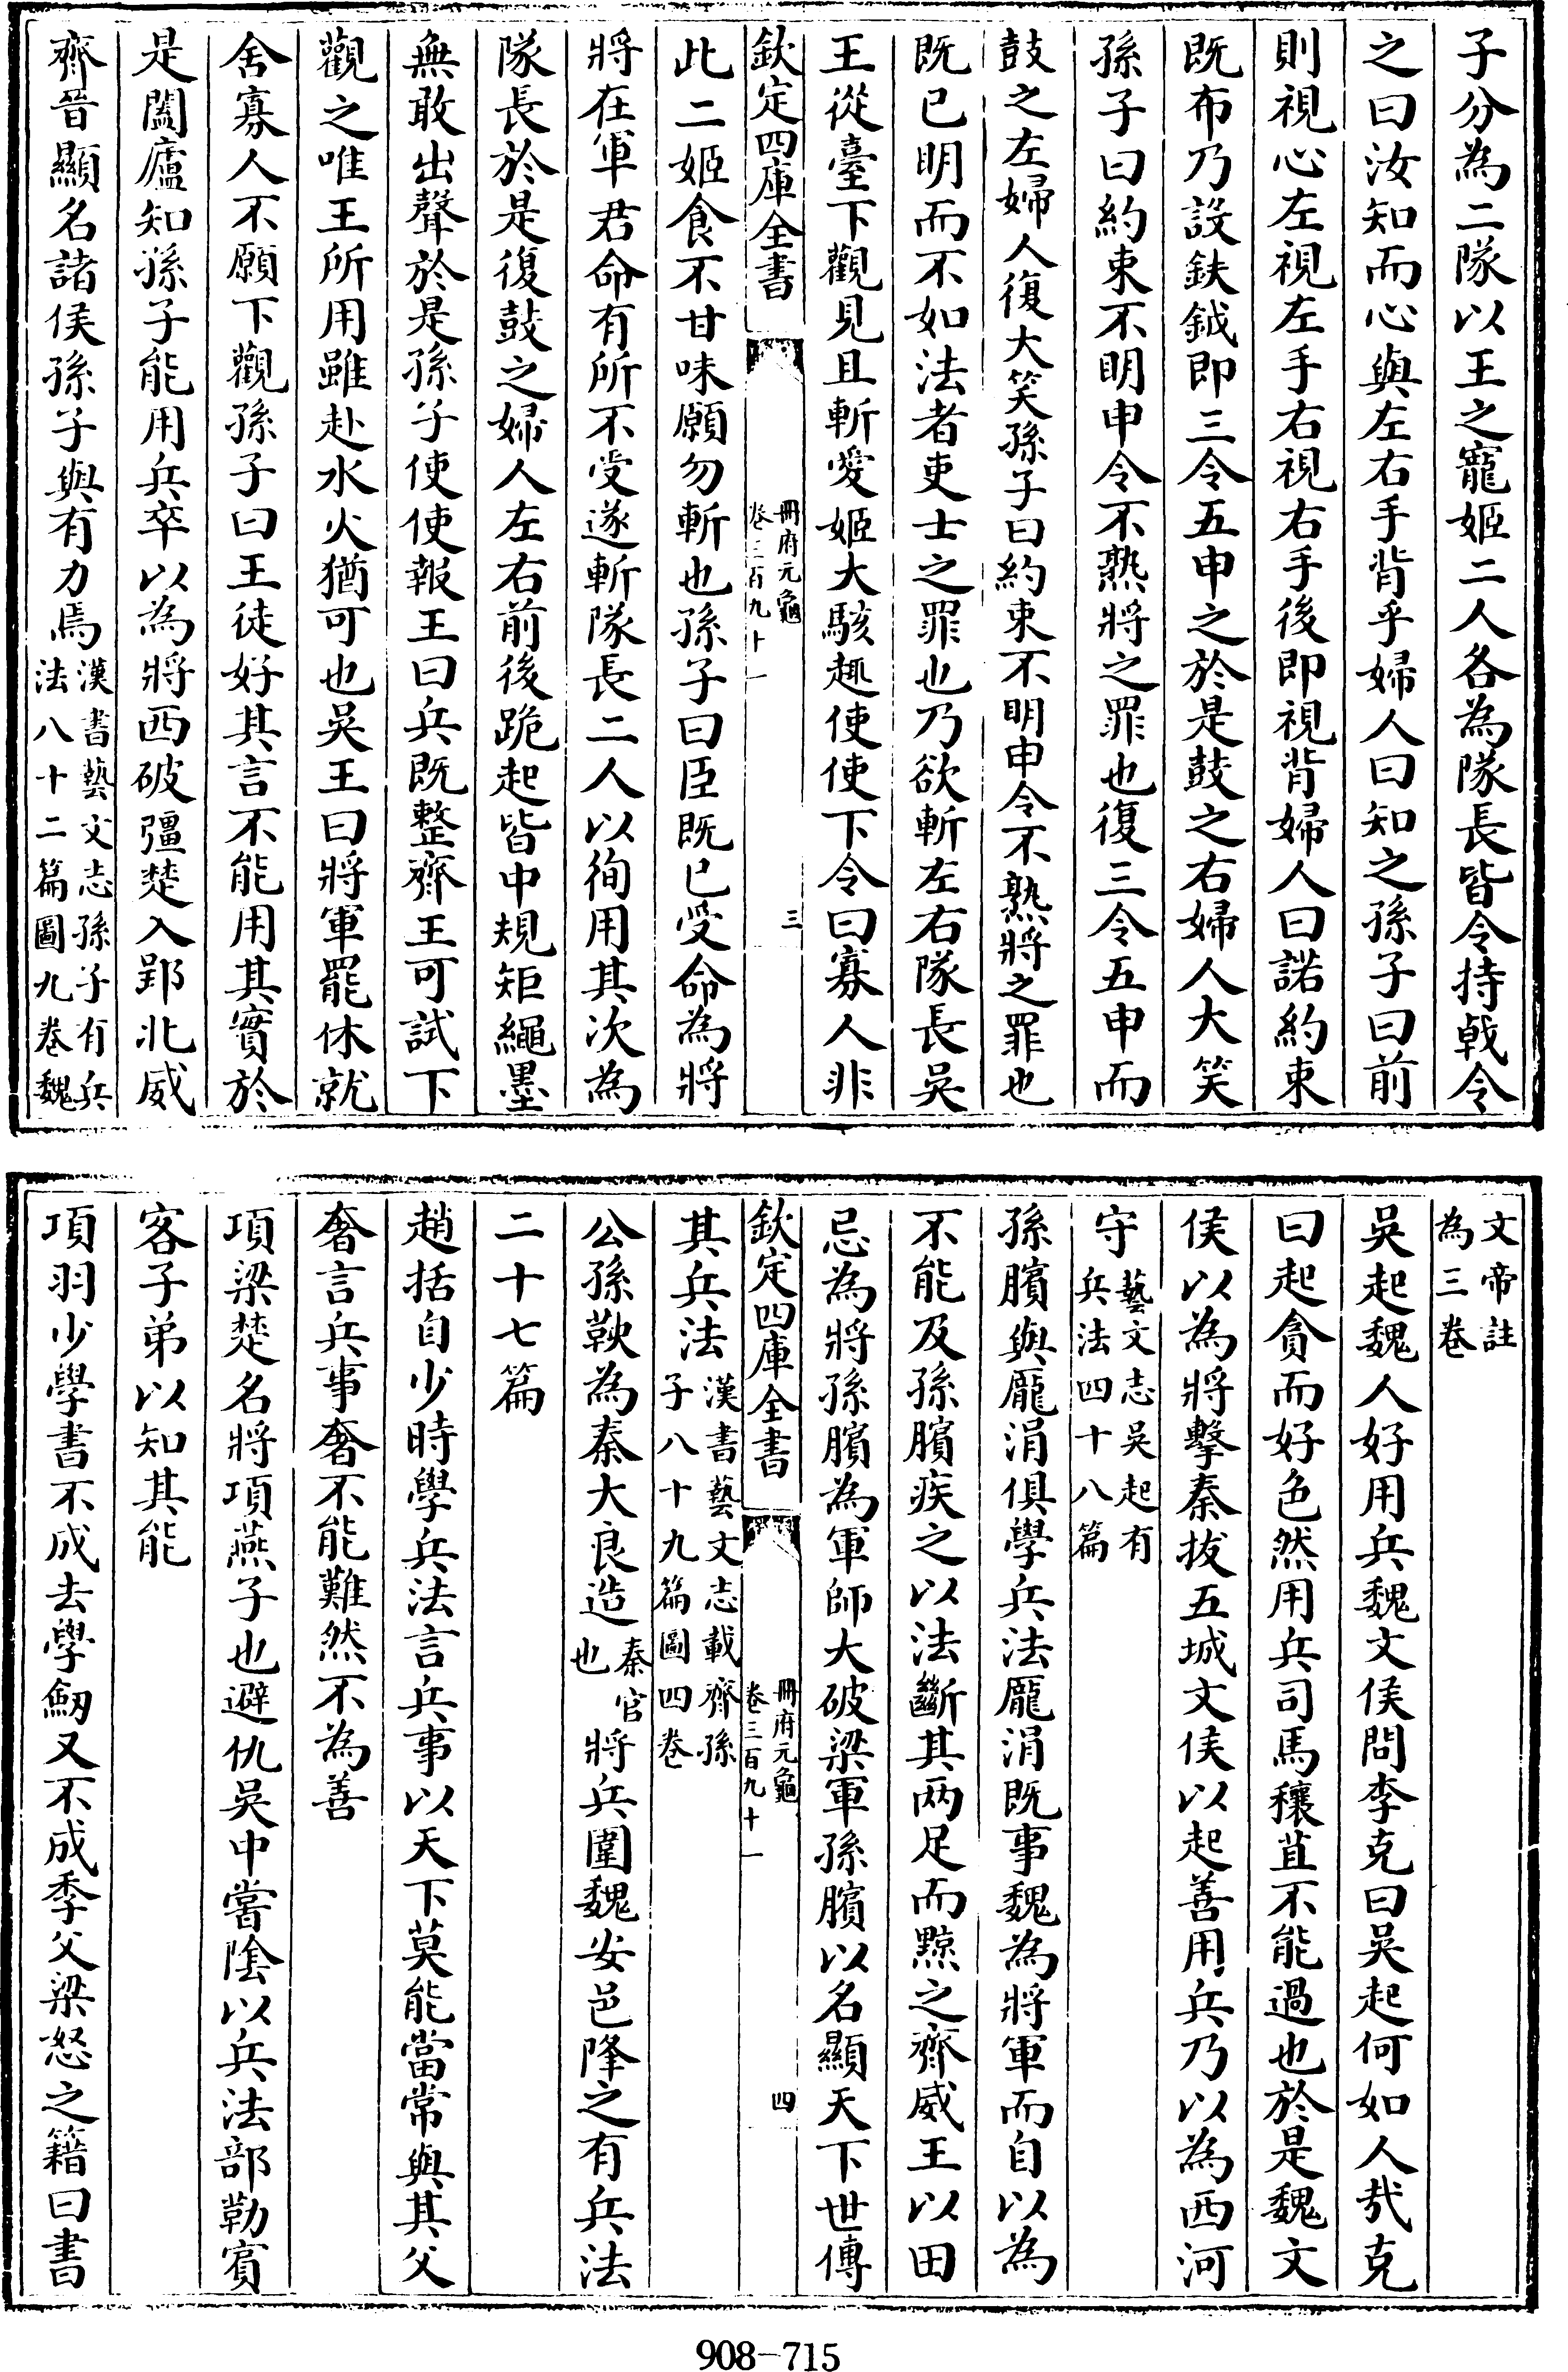 子分為二隊以王之寵姬二人各為隊長皆令持戟令
之曰汝知而心與左右手背乎婦人曰知之孫子曰前
則視心左視左手右視右手後即視背婦人曰諾約束
既布乃設鈇鉞即三令五申之於是鼓之右婦人大笑
孫子曰約束不明申令不熟將之罪也復三令五申而
鼓之左婦人復大笑孫子曰約束不明申令不熟將之罪也
既已明而不如法者吏士之罪也乃欲斬左右隊長吳
王從臺下觀見且斬愛姬大駭趣使使下令曰寡人非
欽定四庫全書
冊府元龜
卷三百九十一
三
此二姬食不甘味願勿斬也孫子曰臣既已受命為將
將在軍君命有所不受遂斬隊長二人以徇用其次為
隊長於是復鼓之婦人左右前後跪起皆中規矩繩墨
無敢出聲於是孫子使使報王曰兵既整齊王可試下
觀之唯王所用雖赴水火猶可也吳王曰將軍罷休就
舍寡人不願下觀孫子曰王徒好其言不能用其實於
是闔廬知孫子能用兵卒以為將西破彊楚入郢北威
齊晉顯名諸侯孫子與有力焉漢書藝文志孫子有兵
法八十二篇圖九卷魏
文帝註
為三卷
吳起魏人好用兵魏文侯問李克曰吳起何如人哉克
曰起貪而好色然用兵司馬穰苴不能過也於是魏文
侯以為將擊秦拔五城文侯以起善用兵乃以為西河
守藝文志吳起有
兵法四十八篇
孫臏與龐涓俱學兵法龐涓既事魏為將軍而自以為
不能及孫臏疾之以法斷其兩足而黥之齊威王以田
忌為將孫臏為軍師大破梁軍孫臏以名顯天下世傳
欽定四庫全書
冊府元龜
卷三百九十一
四
其兵法漢書藝文志載齊孫
子八十九篇圖四卷
公孫鞅為秦大良造秦官
也將兵圍魏安邑降之有兵法
二十七篇
趙括自少時學兵法言兵事以天下莫能當常與其父
奢言兵事奢不能難然不為善
項梁楚名將項燕子也避仇吳中嘗陰以兵法部勒賓
客子弟以知其能
項羽少學書不成去學劒又不成季父梁怒之籍曰書
908-715